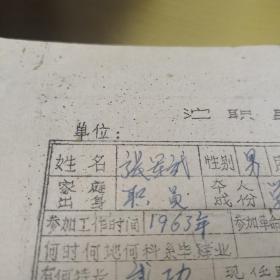 职
单位：
姓名 张 武 性别 男
家庭出身 职员 本人成份
参加工作时间 1963年 参加革命
何时何地何科系毕肄业
有何特长 武功 现任